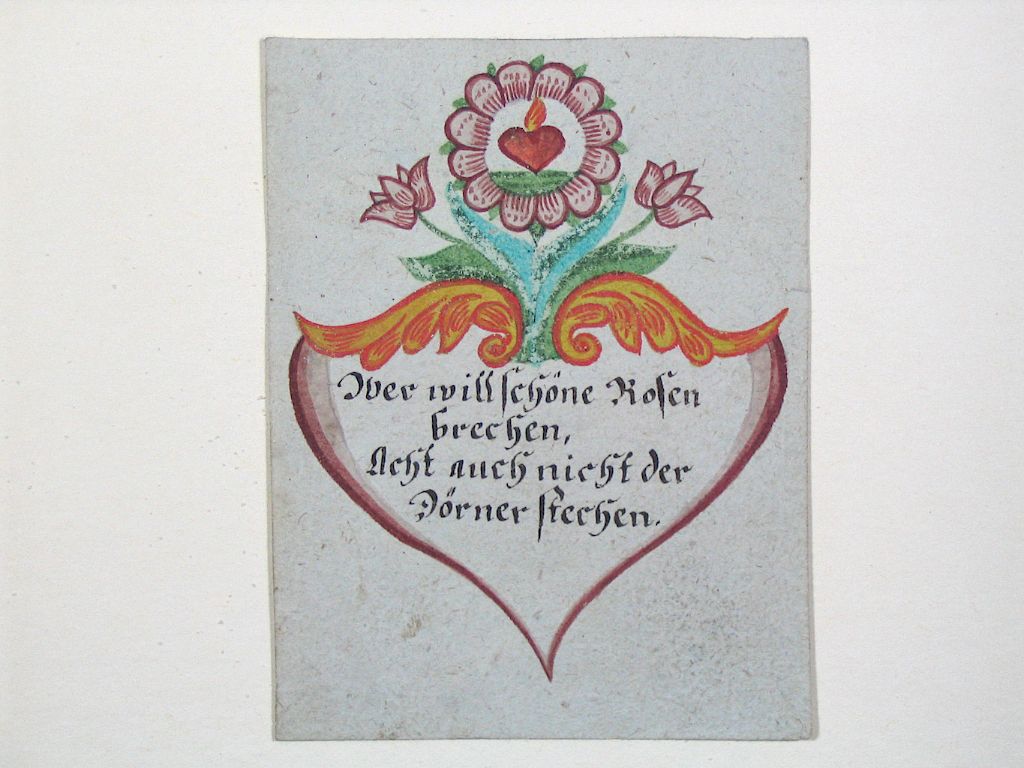 Wer will schöne Rosen
brechen,
Acht auch nicht der
Dörner stechen.